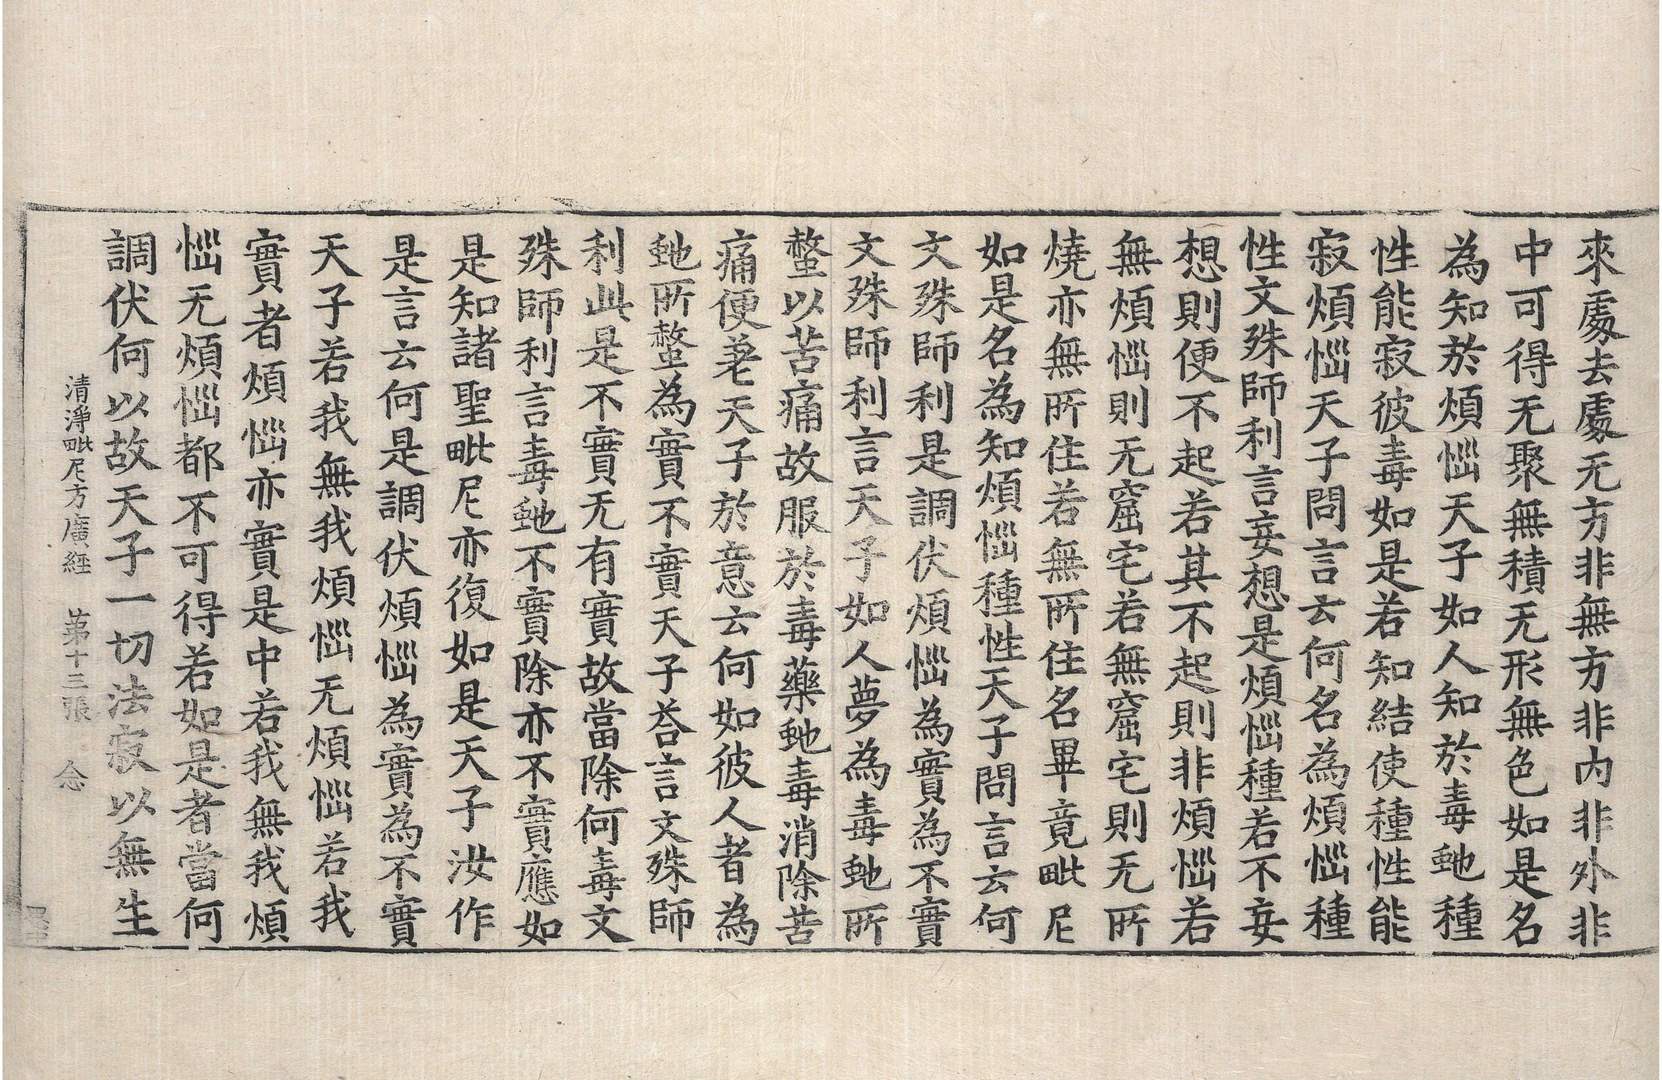 來處去處无方非無方非內非外非
中可得无聚無積无形無色如是名
為知於煩惱天子如人知於毒虵種
性能寂彼毒如是若知結使種性能
寂煩惱天子問言云何名為煩惱種
性文殊師利言妄想是煩惱種若不妄
想則便不起若其不起則非煩惱若
無煩惱則无窟宅若無窟宅則无所
燒亦無所住若無所住名畢竟毗尼
如是名為知煩惱種性天子問言云何
文殊師利是調伏煩惱為實為不實
文殊師利言天子如人夢為毒虵所
螫以苦痛故服於毒藥虵毒消除苦
痛便差天子於意云何如彼人者為
虵所螫為實不實天子荅言文殊師
利此是不實无有實故當除何毒文
殊師利言毒虵不實除亦不實應如
是知諸聖毗尼亦復如是天子汝作
是言云何是調伏煩惱為實為不實
天子若我無我煩惱无煩惱若我
實者煩惱亦實是中若我無我煩
惱无煩惱都不可得若如是者當何
調伏何以故天子一切法寂以無生
清淨毗尼方廣經 苐十三張 念